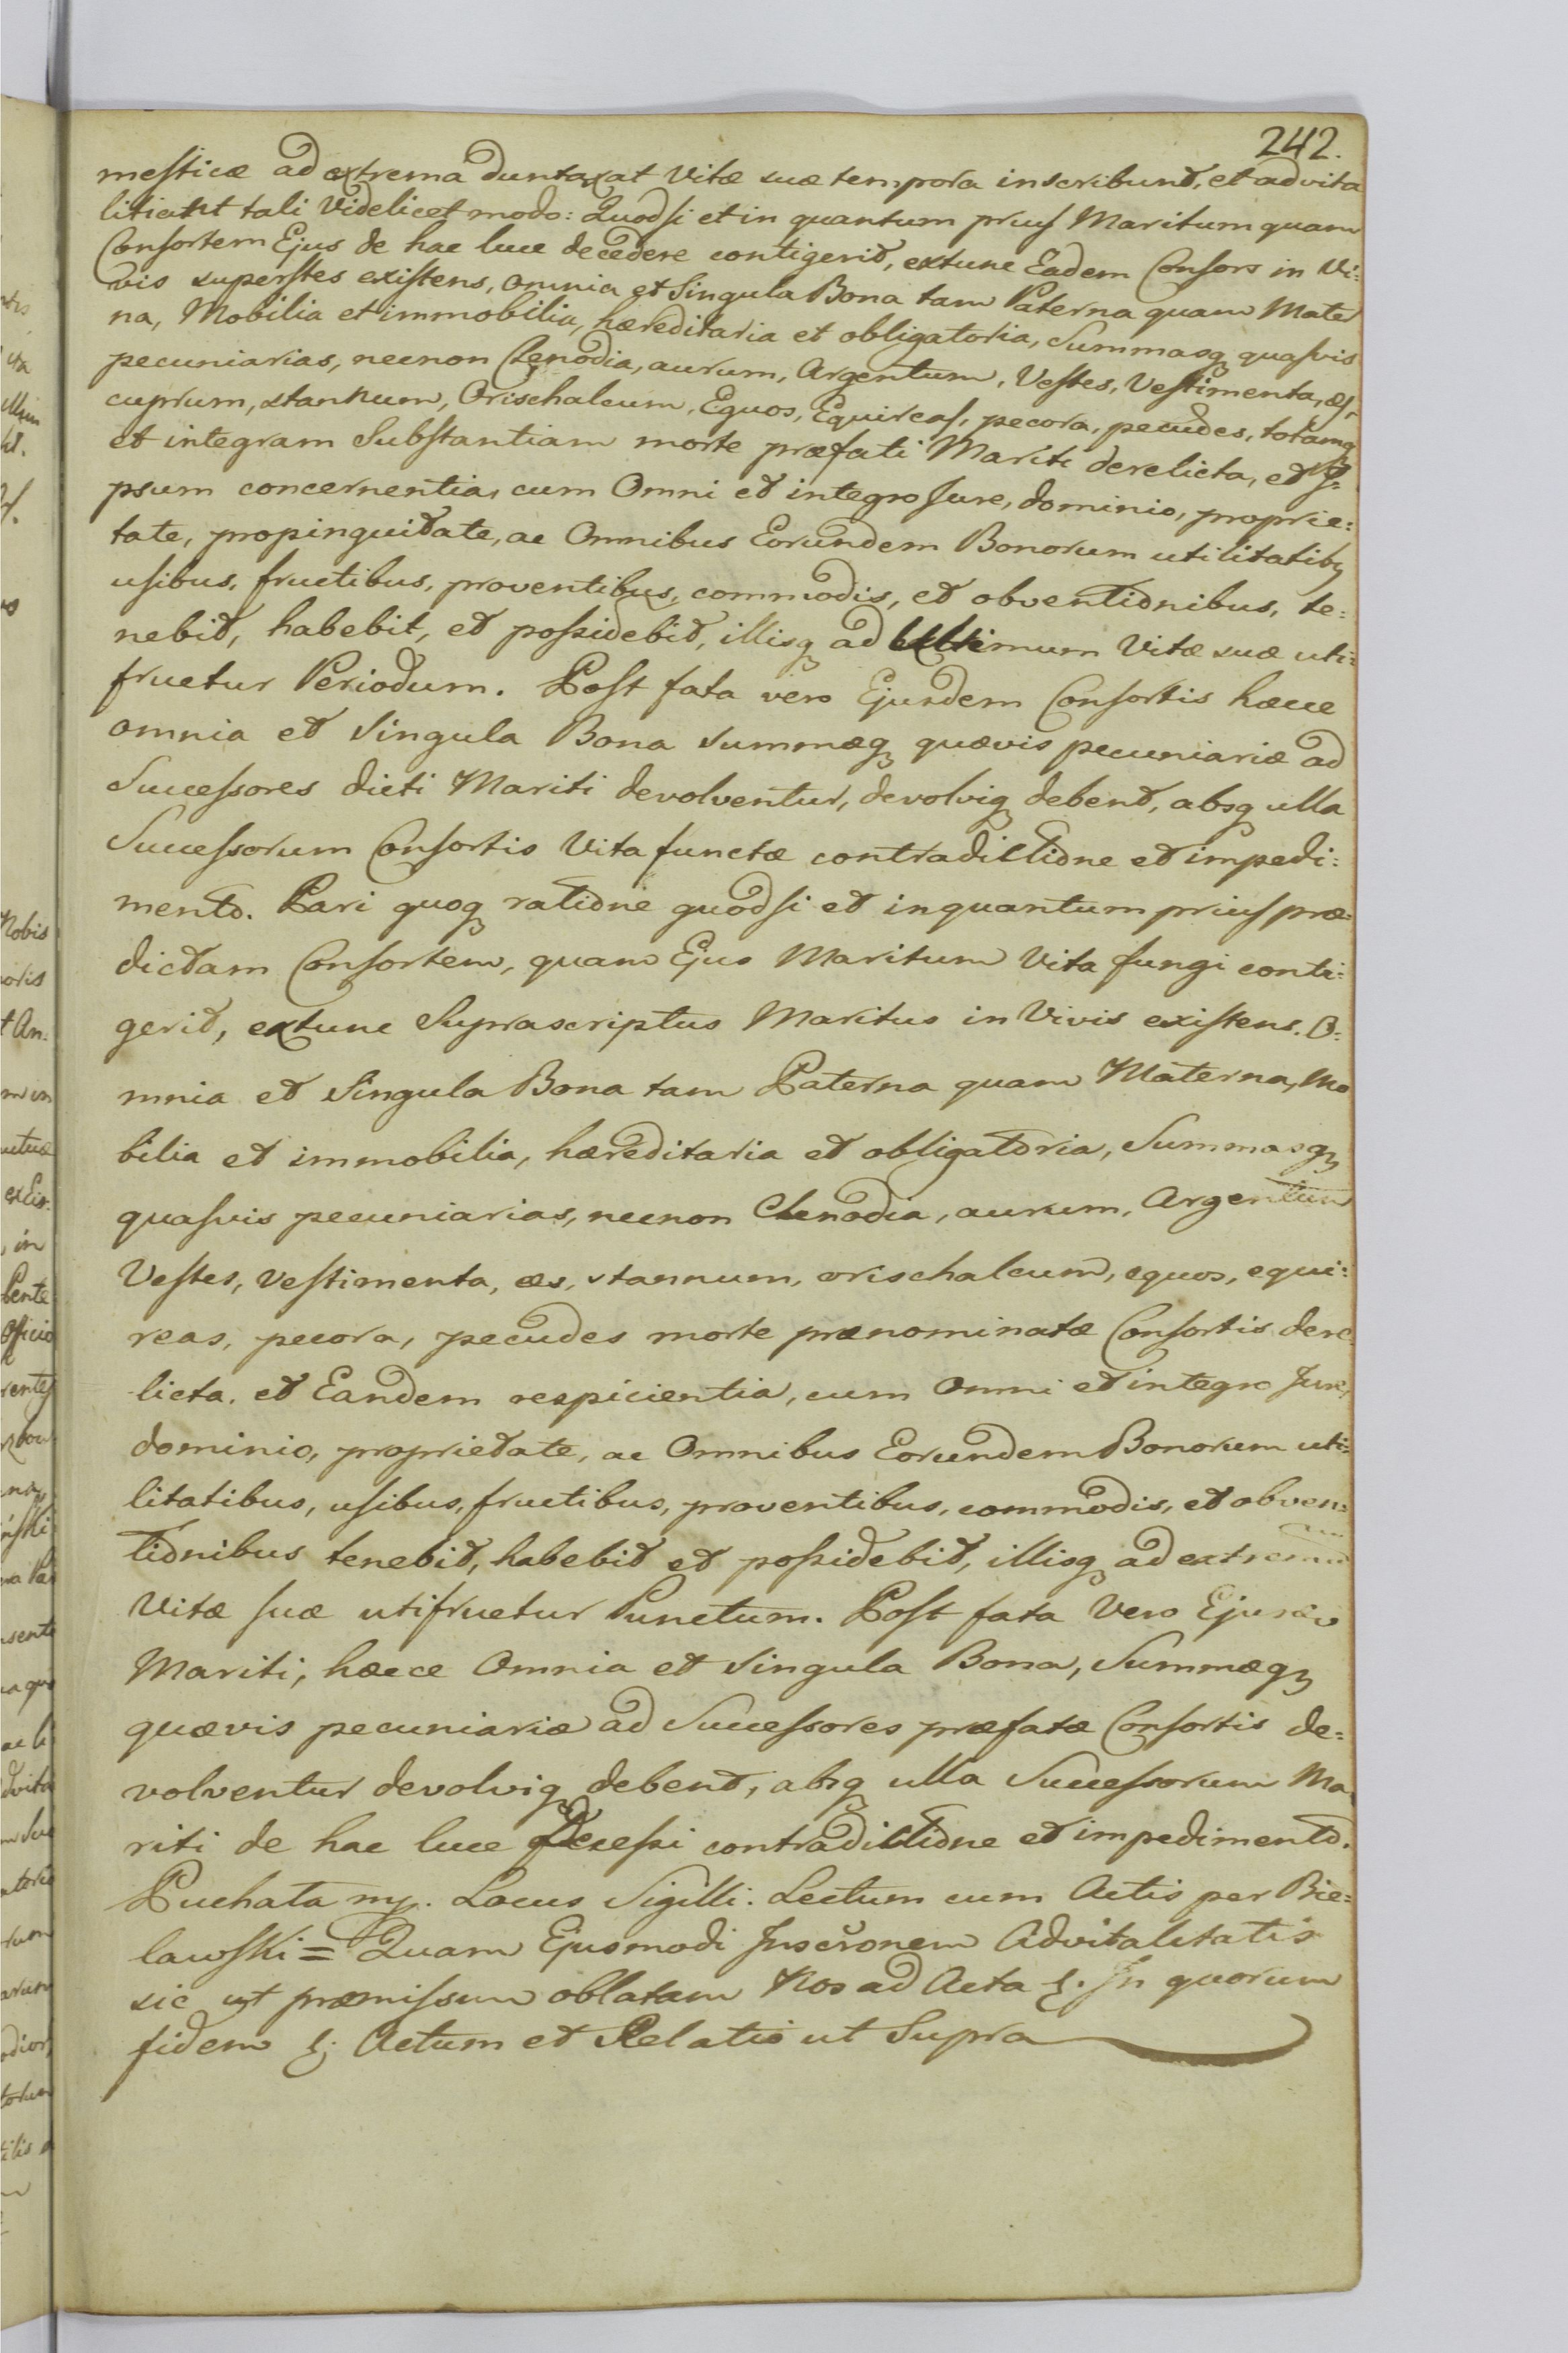 242.
mesticæ ad extrema duntaxat Vitæ suæ tempora inscribunt, et advita
litiant tali Videlicet modo: Quodsi et in quantum prius Maritum quam
Consortem Ejus de hac luce decedere contigerit, extunc Eadem Consors in Vi:
vis superstes existens, omnia et Singula Bona tam Paterna quam Mater
na, Mobilia et immobilia, hæreditaria et obligatoria, Summasq quasvis
pecuniarias, necnon Clenodia, aurum, Argentum, Vestes, Vestimenta, æs,
cuprum, stannum, Orischalcum, Equos, Equireas, pecora, pecudes, totamq
et integram Substantiam morte præfati Mariti derelicta, et I:
psum concernentia, cum Omni et integro Jure, dominio, proprie:
tate, propinquitate, ac Omnibus Eorundem Bonorum utilitatibq
usibus, fructibus, proventibus, commodis, et obventionibus, te:
nebit, habebit, et possidebit, illisq ad ultimum Vitæ suæ uti:
fruetur Periodum. Post fata vero Ejusdem Consortis hæcce
omnia et Singula Bona summæq quævis pecuniariæ ad
Successores dicti Mariti devolventur, devolviq debent, absq ulla
Successorum Consortis Vita functæ contradictione et impedi:
mento. Pari quoq ratione quodsi et inquantum prius præ:
dictam Consortem, quam Ejus Maritum Vita fungi conti:
gerit, extunc Suprascriptus Maritus in Vivis existens. O:
mnia et Singula Bona tam Paterna quam Materna, Mo
bilia et immobilia, hæreditaria et obligatoria, Summasq
quasvis pecuniarias, necnon Clenodia, aurum, Argentum
Vestes, Vestimenta, æs, stannum, orischalcum, equos, equi:
reas, pecora, pecudes morte prænominatæ Consortis dere
licta. et Eandem respicientia, cum Omni et integro Jure,
dominio, proprietate, ac Omnibus Eorundem Bonorum uti:
litatibus, usibus, fructibus, proventibus, commodis, et obven:
tionibus tenebit, habebit et possidebit, illisq ad extremum
Vitæ suæ utifruetur Punctum. Post fata Vero Ejusdem
Mariti, hæcce Omnia et Singula Bona, Summæq
quævis pecuniariæ ad Successores præfatæ Consortis de:
volventur devolviq debent, absq ulla Successorum Ma
riti de hac luce Decessi contradictione et impedimento.
Puchata mp. Locus Sigilli. Lectum cum Actis per Bie:
lawski = Quam Ejusmodi Inscrōnem Advitalitatis
sic ut præmissum oblatam Nos ad Acta &. In quorum
fidem &; Actum et Relatio ut Supra